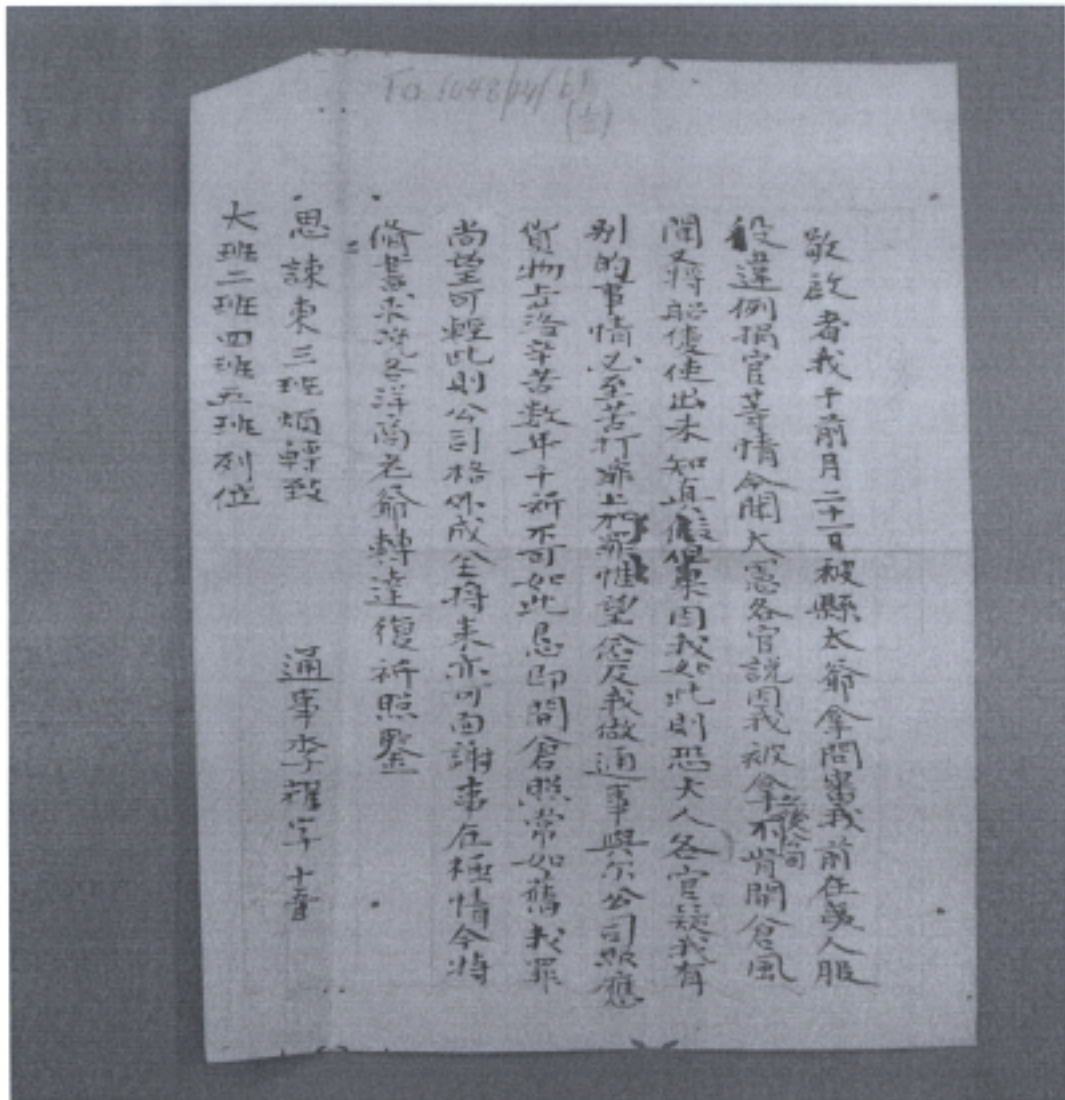 F.O. 1048/14/68
敬啟者我于前月二十一日被縣太爺拿問當我前在夷人服
役違例捐官等情今聞大憲各官說因我被拿之後公司不肯開倉風
聞又將船使出未知真假但果因我如此則恐大人各官疑我有
別的事情必至苦打罪上加罪惟望念及我做通事與尔公司照應
貨物上落辛苦數年千祈不可如此忌即開倉照常如舊我罪
尚望可輕此則公司格外成全將來亦可面謝事在極情今特
修書求洗各洋商老爺轉達復祈照鑒
通事李耀字十音
思諫東三班煩轉致
大班二班四班五班列位